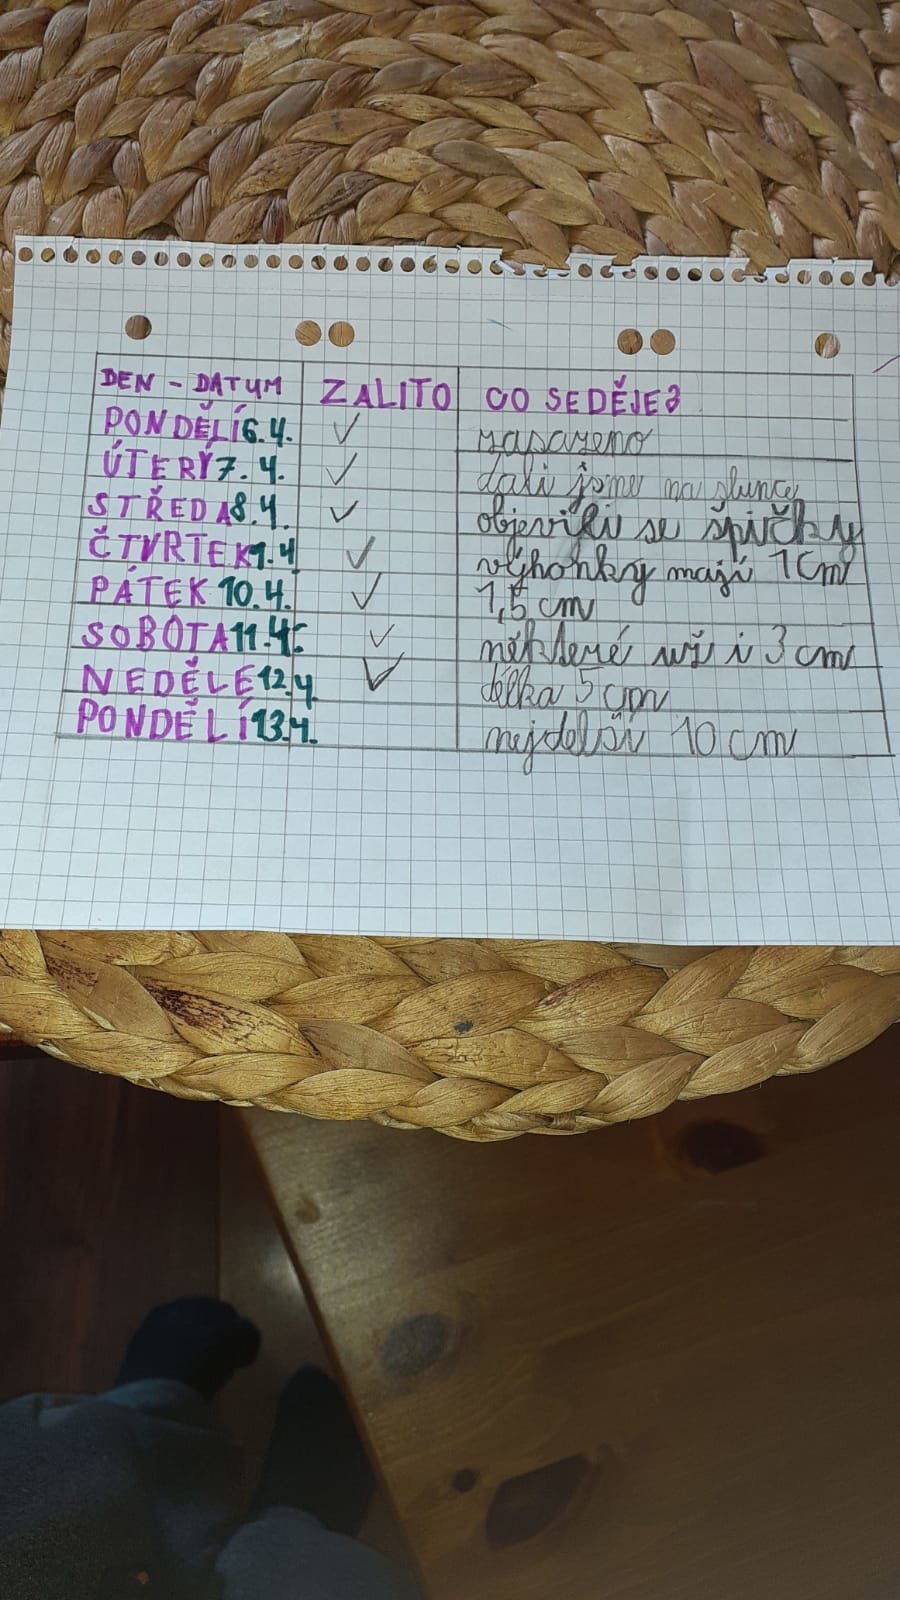 DEN - DATUM ZALITO CO SE DĚJE?
PONDĚLÍ 6.4. ✓ zasazeno
ÚTERÝ 7.4. ✓ dali jsme na slunce
STŘEDA 8.4. ✓ objevili se špičky
ČTVRTEK 9.4 ✓ výhonky mají 1 cm
PÁTEK 10.4. ✓ 1,5 cm
SOBOTA 11.4. ✓ některé už i 3 cm
NEDĚLE 12.4. ✓ délka 5 cm
PONDĚLÍ 13.4. nejdelší 10 cm